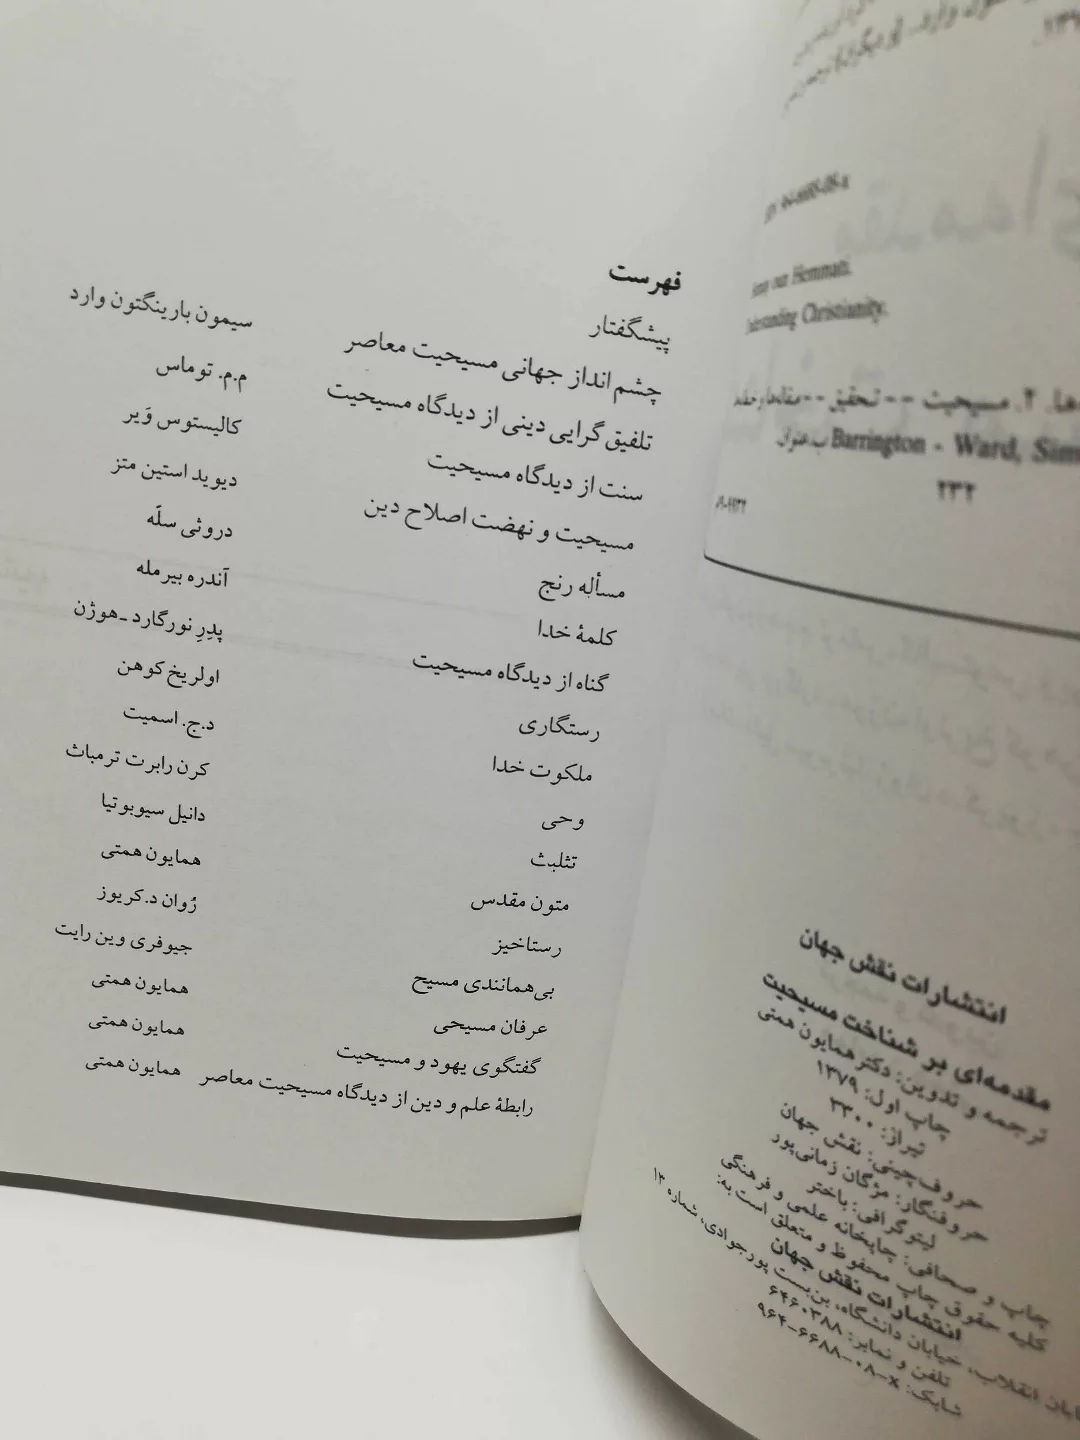 Hemmati.
Christianity.
۲. مسیحیت -- تحقیق --
Barrington - Ward, Sim
۲۳۲
انتشارات نقش جهان
مقدمه‌ای بر شناخت مسیحیت
ترجمه و تدوین: دکتر همایون همتی
چاپ اول: ۱۳۷۹
تیراژ: ۳۳۰۰
حروف‌چینی: نقش جهان
حروفنگار: مژگان زمانی‌پور
لیتوگرافی: باختر
چاپ و صحافی: چاپخانه علمی و فرهنگی
کلیه حقوق چاپ محفوظ و متعلق است به:
انتشارات نقش جهان
انقلاب، خیابان دانشگاه، بن‌بست پورجوادی، شماره ۱۳
تلفن و نمابر: ۶۴۶۰۳۸۸
شابک: ۹۶۴-۶۶۸۸-۰۸-x
فهرست
پیشگفتار
چشم انداز جهانی مسیحیت معاصر سیمون بارینگتون وارد
تلفیق‌گرایی دینی از دیدگاه مسیحیت م.م. توماس
سنت از دیدگاه مسیحیت کالیستوس وَیر
مسیحیت و نهضت اصلاح دین دیوید استین متز
مسأله رنج دروثی سلّه
کلمهٔ خدا آندره بیرمله
گناه از دیدگاه مسیحیت پدِرِ نورگارد ـ هوژن
رستگاری اولریخ کوهن
ملکوت خدا د.ج. اسمیت
وحی کرن رابرت ترمباث
تثلیث دانیل سیوبوتیا
متون مقدس همایون همتی
رستاخیز ژوان د.کریوز
بی‌همانندی مسیح جیوفری وین رایت
عرفان مسیحی همایون همتی
گفتگوی یهود و مسیحیت همایون همتی
رابطهٔ علم و دین از دیدگاه مسیحیت معاصر همایون همتی